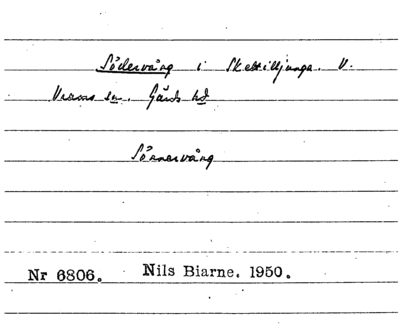 Södervång i Skettilljunga. V.
Vrams sn. Gärds hd
Sönnervång
Nr 6806. Nils Biarne. 1950.